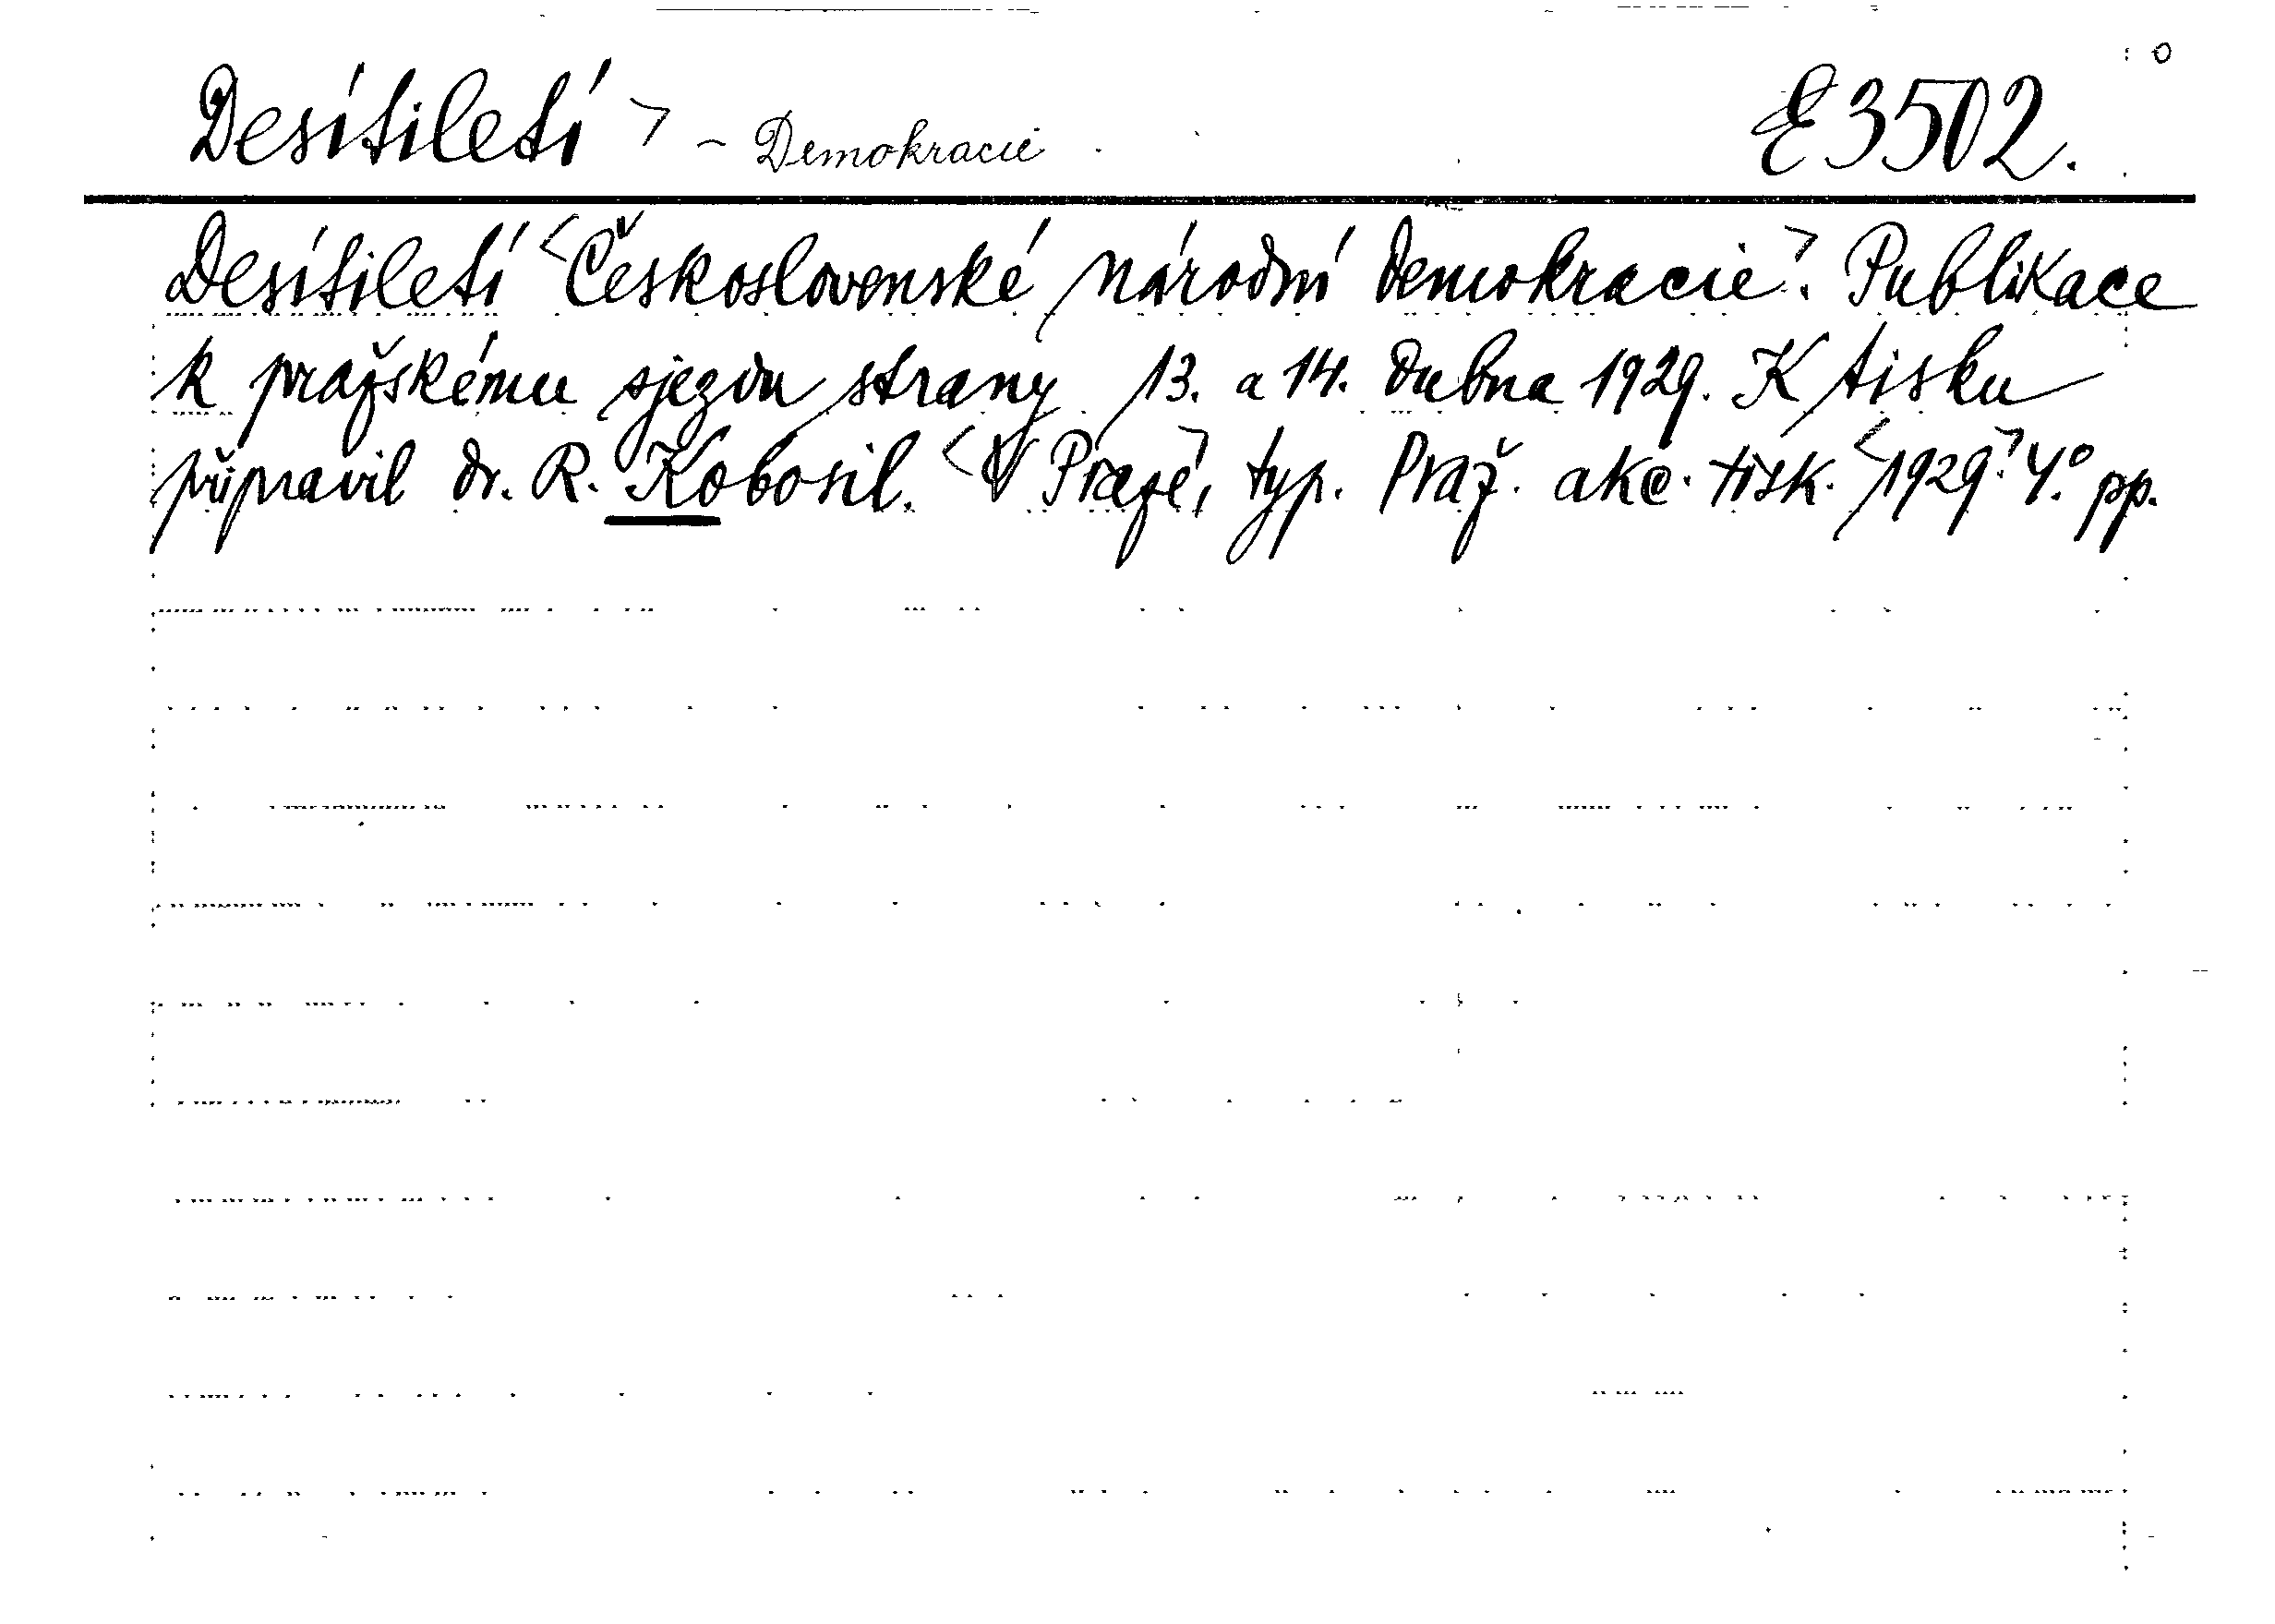 Desítiletí > - Demokracie E 3502.
Desítiletí <Československé národní demokracie>. Publikace
k pražskému sjezdu strany 13. a 14. dubna 1929. K tisku
připravil dr. R. Kobosil. <V Praze>, typ. Praž. akc. tisk. <1929>. 4.° pp.